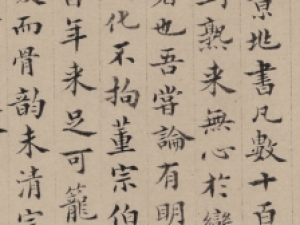 地書凡數十百
熟来無心於變
也吾嘗論有明
化不拘董宗伯
年来足可籠
而骨韵未清宗